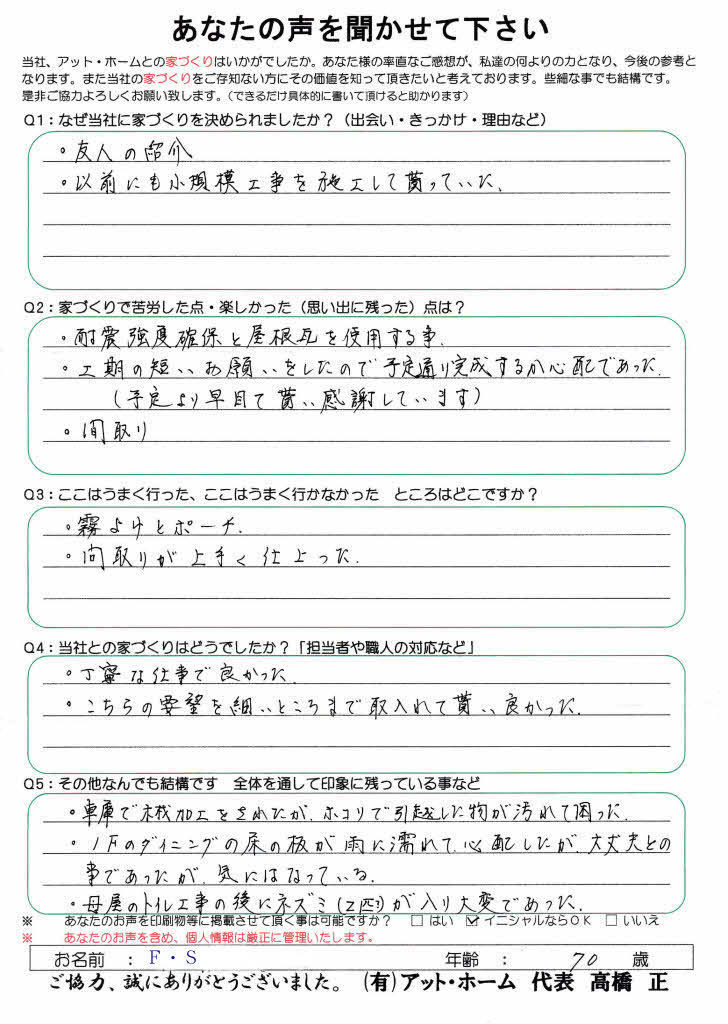 あなたの声を聞かせて下さい
当社、アット・ホームとの家づくりはいかがでしたか。あなた様の率直なご感想が、私達の何よりの力となり、今後の参考と
なります。また当社の家づくりをご存知ない方にその価値を知って頂きたいと考えております。些細な事でも結構です。
是非ご協力よろしくお願い致します。（できるだけ具体的に書いて頂けると助かります）
Q1：なぜ当社に家づくりを決められましたか？（出会い・きっかけ・理由など）
・友人の紹介
・以前にも小規模工事を施工して貰っていた。
Q2：家づくりで苦労した点・楽しかった（思い出に残った）点は？
・耐震強度確保と屋根瓦を使用する事.
・工期の短いお願いをしたので予定通り完成するか心配であった.
（予定より早目で貰い感謝しています）
・間取り
Q3：ここはうまく行った、ここはうまく行かなかった　ところはどこですか？
・霧よけとポーチ.
・間取りが上手く仕上った.
Q4：当社との家づくりはどうでしたか？「担当者や職人の対応など」
・丁寧な仕事で良かった.
・こちらの要望を細いところまで取入れて貰い良かった.
Q5：その他なんでも結構です　全体を通して印象に残っている事など
・車庫で木材加工をされたが、ホコリで引越した物が汚れて困った.
・1Fのダイニングの床の板が雨に濡れて、心配したが、大丈夫との
事であったが、気にはなっている.
・母屋のトイレ工事の後にネズミ（2匹）が入り大変であった.
※　あなたのお声を印刷物等に掲載させて頂く事は可能ですか？　□ はい　☑ イニシャルならOK　□ いいえ
※　あなたのお声を含め、個人情報は厳正に管理いたします。
お名前　：　F・S　年齢　：　70　歳
ご協力、誠にありがとうございました。（有）アット・ホーム　代表　高橋　正